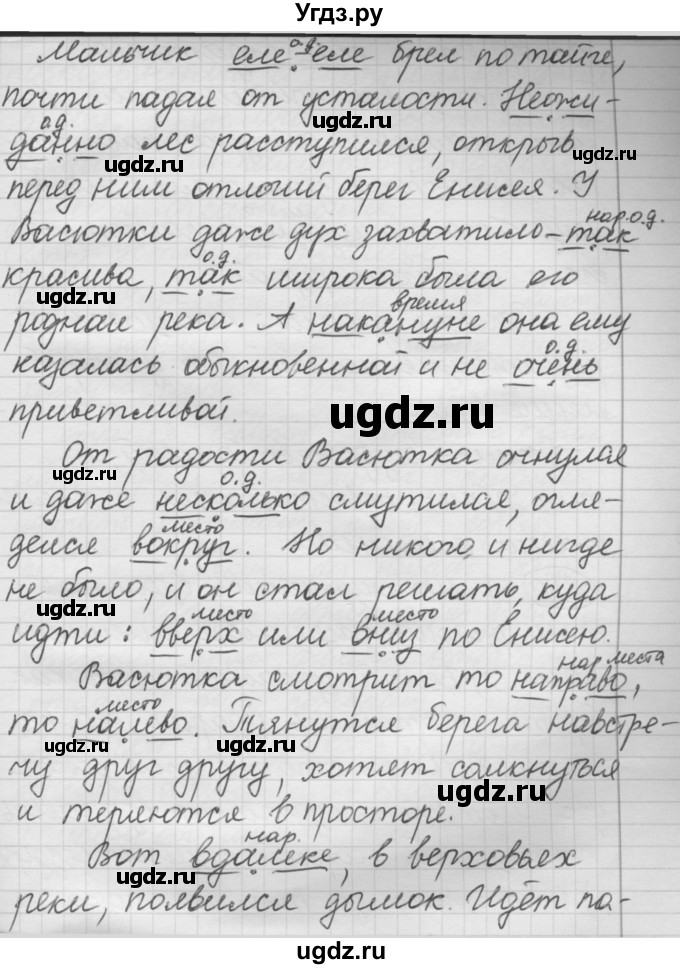 Угдз.ру
о.д.
Мальчик еле-еле брел по тайге,
почти падая от усталости. Неожи-
о.д.
данно лес расступился, открыв
ugdz.ru ugdz.ru
перед ним отлогий берег Енисея. У
нар.о.д.
Васютки даже дух захватило - так
о.д.
красива, так широка была его
ugdz.ru
время
родная река. А накануне она ему
о.д.
казалась обыкновенной и не очень
ugdz.ru
приветливой.
От радости Васютка очнулся
о.д.
и даже несколько смутился, огля-
ugdz.ru
место
делся вокруг. Но никого и нигде
не было, и он стал решать, куда
ugdz.ru
место место
идти: вверх или вниз по Енисею.
нар. места
Васютка смотрит то направо,
место
то налево. Тянутся берега навстре-
ugdz.ru ugdz.ru
чу друг другу, хотят сомкнуться
ugdz.ru
и теряются в просторе.
нар.
Вот вдалеке, в верховьях
ugdz.ru
реки, появился дымок. Идёт па-
ugdz.ru